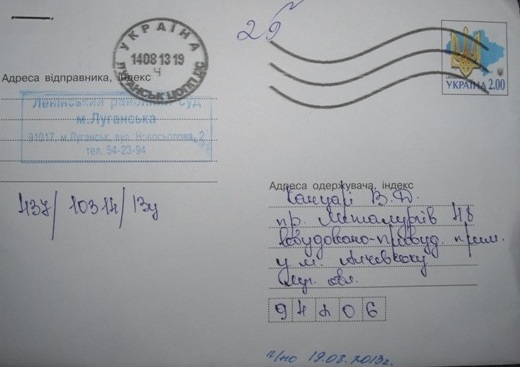 29
УКРАЇНА
1408 13 19
Ч
ЛУГАНСЬК
УКРАЇНА 2.00
Адреса відправника, індекс
Ленінський районний суд
м.Луганська
91017, м.Луганськ, вул. Новосьолова, 2
тел. 54-23-94
437/10314/13ц
Адреса одержувача, індекс
В.Д.
пр. Металургів 48
вбудовано-прибуд. прим.
у м. Алчевську
Луг. обл.
94206
п/по 19.08.2013г.